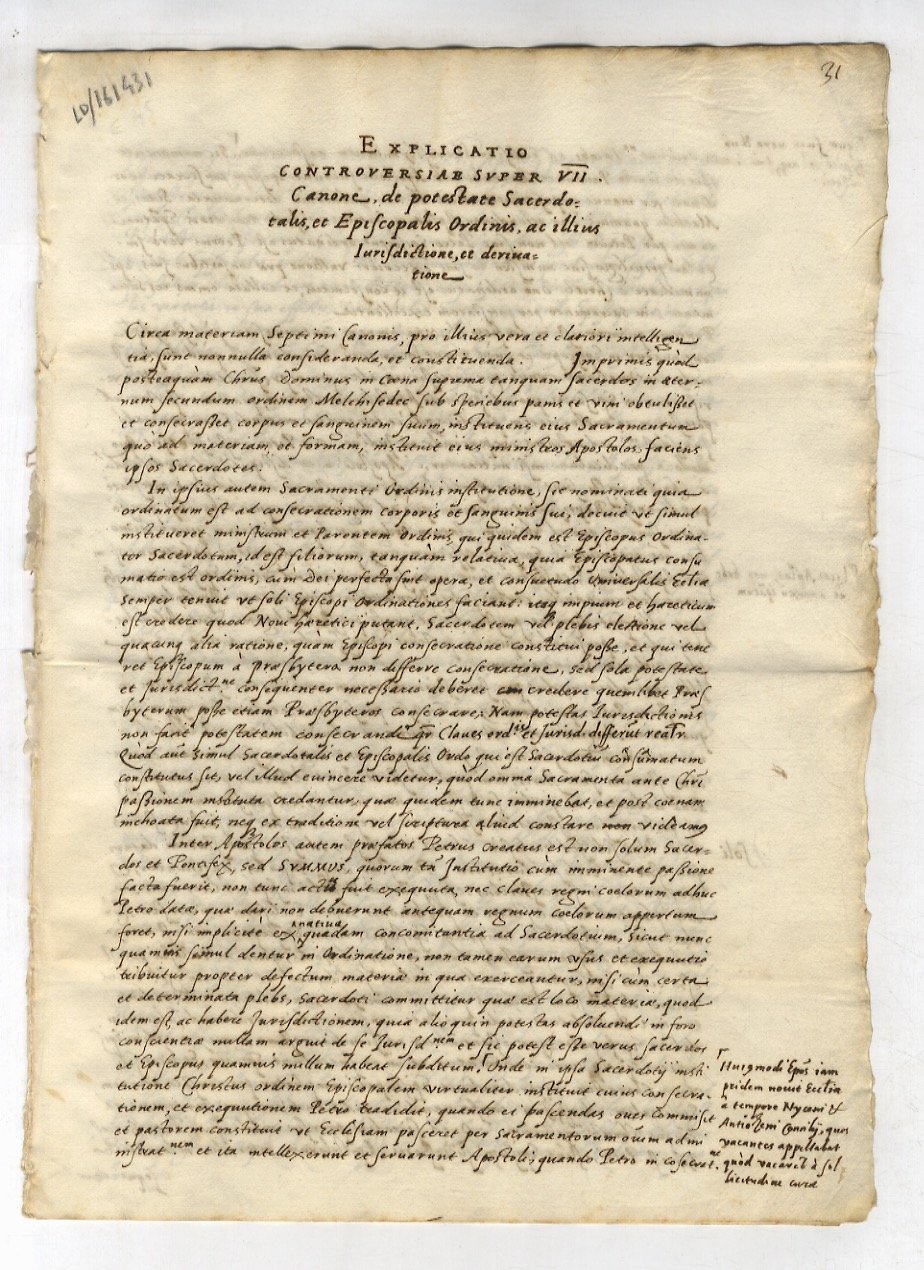 LD/161431
31
EXPLICATIO
CONTROVERSIAE SVPER VII.
Canone, de potestate Sacerdo-
talis, et Episcopalis Ordinis, ac illius
Iurisdictione, et deriua-
tione
Circa materiam Septimi Canonis, pro illius vera et clariori intelligen
tia, sunt nonnulla consideranda, et constituenda. Imprimis quòd
posteaquàm Chrũs Dominus in Coena suprema tanquam sacerdos in aeter-
num secundum ordinem Melchisedec sub speciebus panis et vini obtulisset
et consecrasset corpus et sanguinem suum, instituens eius Sacramentum
quò ad materiam, et formam, instituit eius ministros Apostolos, faciens
ipsos Sacerdotes.
In ipsius autem Sacramenti Ordinis institutione, sic nominati quia
ordinatum est ad consecrationem corporis et sanguinis sui, decuit vt simul
institueret ministrum et Parentem Ordinis, qui quidem est Episcopus Ordina-
tor Sacerdotum, id est filiorum, tanquàm relatiua, quia Episcopatus consu
matio est ordinis, cùm Dei perfecta sint opera, et consuetudo Vniuersalis Ecliae
semper tenuit vt soli Episcopi Ordinationes faciant: itaq impium et haereticum
est credere quod Noui haeretici putant, Sacerdotem vel plebis electione vel
quacunq alia ratione, quàm Episcopi consecratione constitui posse, et qui tene
ret Episcopum a praesbytero non differre consecratione, sed sola potestate
et Iurisdict.ne consequenter necessario deberet credere quemlibet Praes
byterum posse etiam Praesbyteros consecrare; Nam potestas Iurisdictionis
non facit potestatem consecrandi, qr Claues ord.is et Iurisd. differũt reatr.
Quòd aut simul Sacerdotalis et Episcopalis Ordo qui est Sacerdotiũ consũmatum
constitutus sit, vel illud euincere videtur, quòd omnia Sacramenta ante Chri
passionem instituta credantur, quae quidem tunc imminebat, et post coenam
inchoata fuit, neq ex traditione vel scriptura aliud constare videam9
Inter Apostolos autem praefatos Petrus creatus est non solum Sacer-
dos et Pontifex, sed SVMMVS, quorum tñ Institutio cùm imminente passione
facta fuerit, non tunc fuit exequuta, nec claues regni coelorum adhuc
Petro datae, quae dari non debuerunt antequam regnum coelorum appertum
foret, nisi implicite ex natiua quadam concomitantia ad Sacerdotium, sicut nunc
quamuis simul dentur in Ordinatione, non tamen earum vsus et exequutio
tribuitur propter defectum materiae in qua exerceantur, nisi cùm certa
et determinata plebs, Sacerdoti committitur quae est loco materiae, quod
idem est, ac habere Iurisdictionem, quia alioquin potestas absoluendi in foro
conscientiae nullam arguit de se Iurisd.nem et sic potest esse verus sacerdos
et Episcopus quamuis nullum habeat subditum, Vnde in ipsa Sacerdotij insti
tutione Christus ordinem Episcopalem virtualiter instituit cuius consecra-
tionem, et exequutionem Petro tradidit, quando ei pascendas oues Commisit
et pastorem constituit vt Ecclesiam pasceret per Sacramentorum ouium admi
nistrat.nem et ita intellexerunt et seruarunt Apostoli, quando Petro in cosecrat.ne
Huiqmodi Epũs iam
pridem nouit Ecclia
a tempore Nyceni et
Antiocheni Concilij, quos
vacantes appellabat
quòd vacaret à sol
licitudine curae